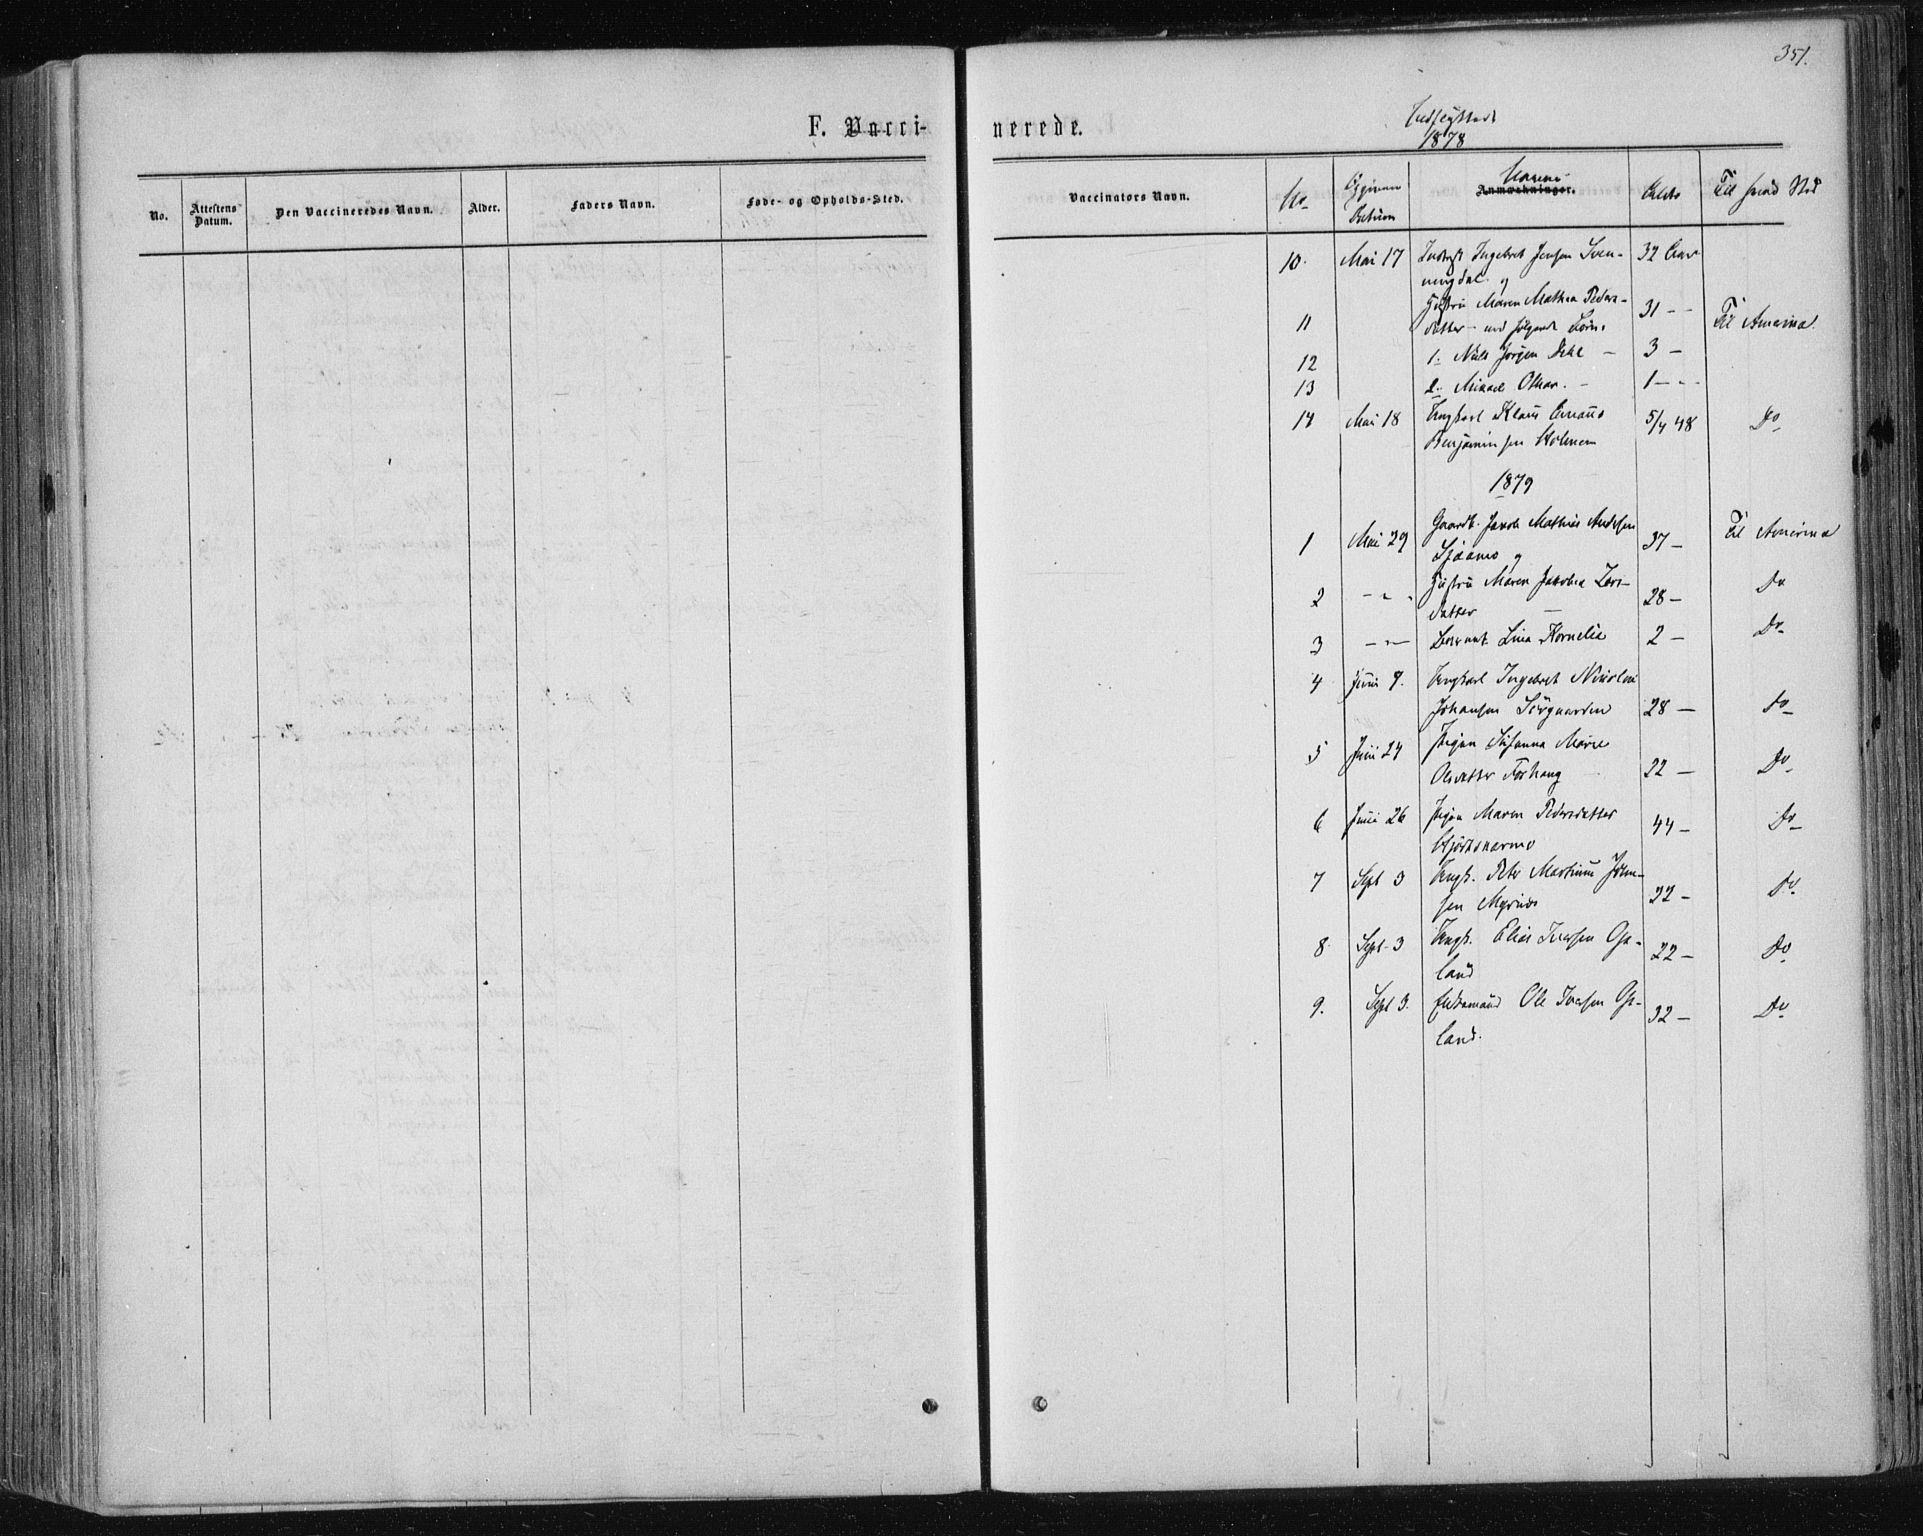 351.
F. Vacci-
nerede.
1878
No.
Attestens Datum.
Den Vaccineredes Navn.
Alder.
Faders Navn.
Føde- og Opholds-Sted.
Vaccinators Navn.
No
Datum
Anmærkninger.
Til hvad Sted
10. Mai 17 Ingebret Jensen Sven-
ningdal. og 32 Aar
11 Hustru Maren Mathea Peders-
datter - med følgende Børn: 31 - - Til Amerika
12 1. Nils Jørgen Dahl - 3 -
13 2. Mikael Othar. - 1 - - -
14 Mai 18 Ungkarl Klaus Emaus
Benjaminsen Holmen 5/4 48 Do
1879
1 Mai 29 Gaardb. Jakob Mathias Andersen
og 37 - Til Amerika
2 - " - Hustru Maren Jakobea Lars-
datter 28 - Do
3 - " - Lina Kornelia 2 - Do
4 Juni 9. Ungkarl Ingebret Nicolai
Johansen Sørgaarden 28 - Do
5 Juni 24 Pigen Susanna Marie
Olsdatter Forhaug 22 - Do
6 Juni 26 Pigen Maren Pedersdatter
44 - Do
7 Sept 3 Ungk. Peter Martinus Johan-
sen Myrnes 22 - Do
8 Sept. 3 Ungk. Elias Iversen Ose-
land 22 - Do
9. Sept 3. Enkemand Ole Iversen Ose-
land. 32 - Do